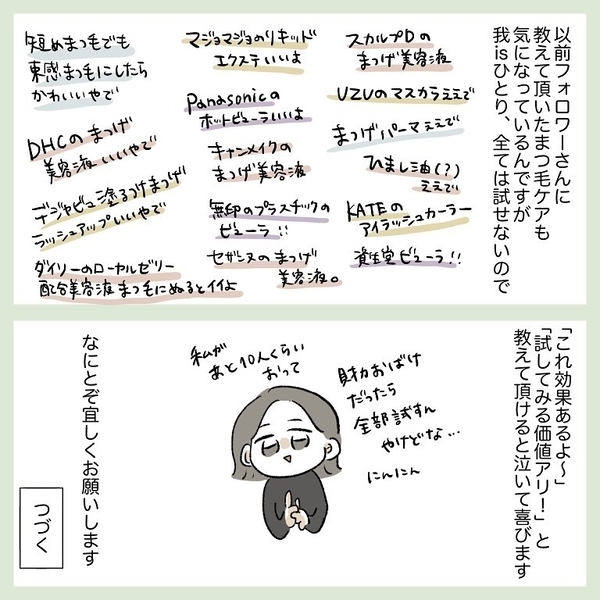 以前フォロワーさんに
教えて頂いたまつ毛ケアも
気になっているんですが
我isひとり、全ては試せないので
スカルプDの
まつげ美容液
UZUのマスカラええで
まつげパーマええで
ひまし油(?)
ええで
KATEの
アイラッシュカーラー
資生堂ビューラ!!
マジョマジョのリキッド
エクステいいよ
Panasonicの
ホットビューラいいよ
キャンメイクの
まつげ美容液
無印のプラスチックの
ビューラ!!
セザンヌのまつげ
美容液。
短めまつ毛でも
束感まつ毛にしたら
かわいいやで
DHCのまつげ
美容液いいやで
デジャビュ塗るつけまつげ
ラッシュアップいいやで
ダイソーのローヤルゼリー
配合美容液まつ毛にぬるとイイよ
「これ効果あるよ〜」
「試してみる価値アリ!」と
教えて頂けると泣いて喜びます
財力おばけ
だったら
全部試すん
やけどな…
にんにん
私が
あと10人くらい
おって
なにとぞ宜しくお願いします
つづく